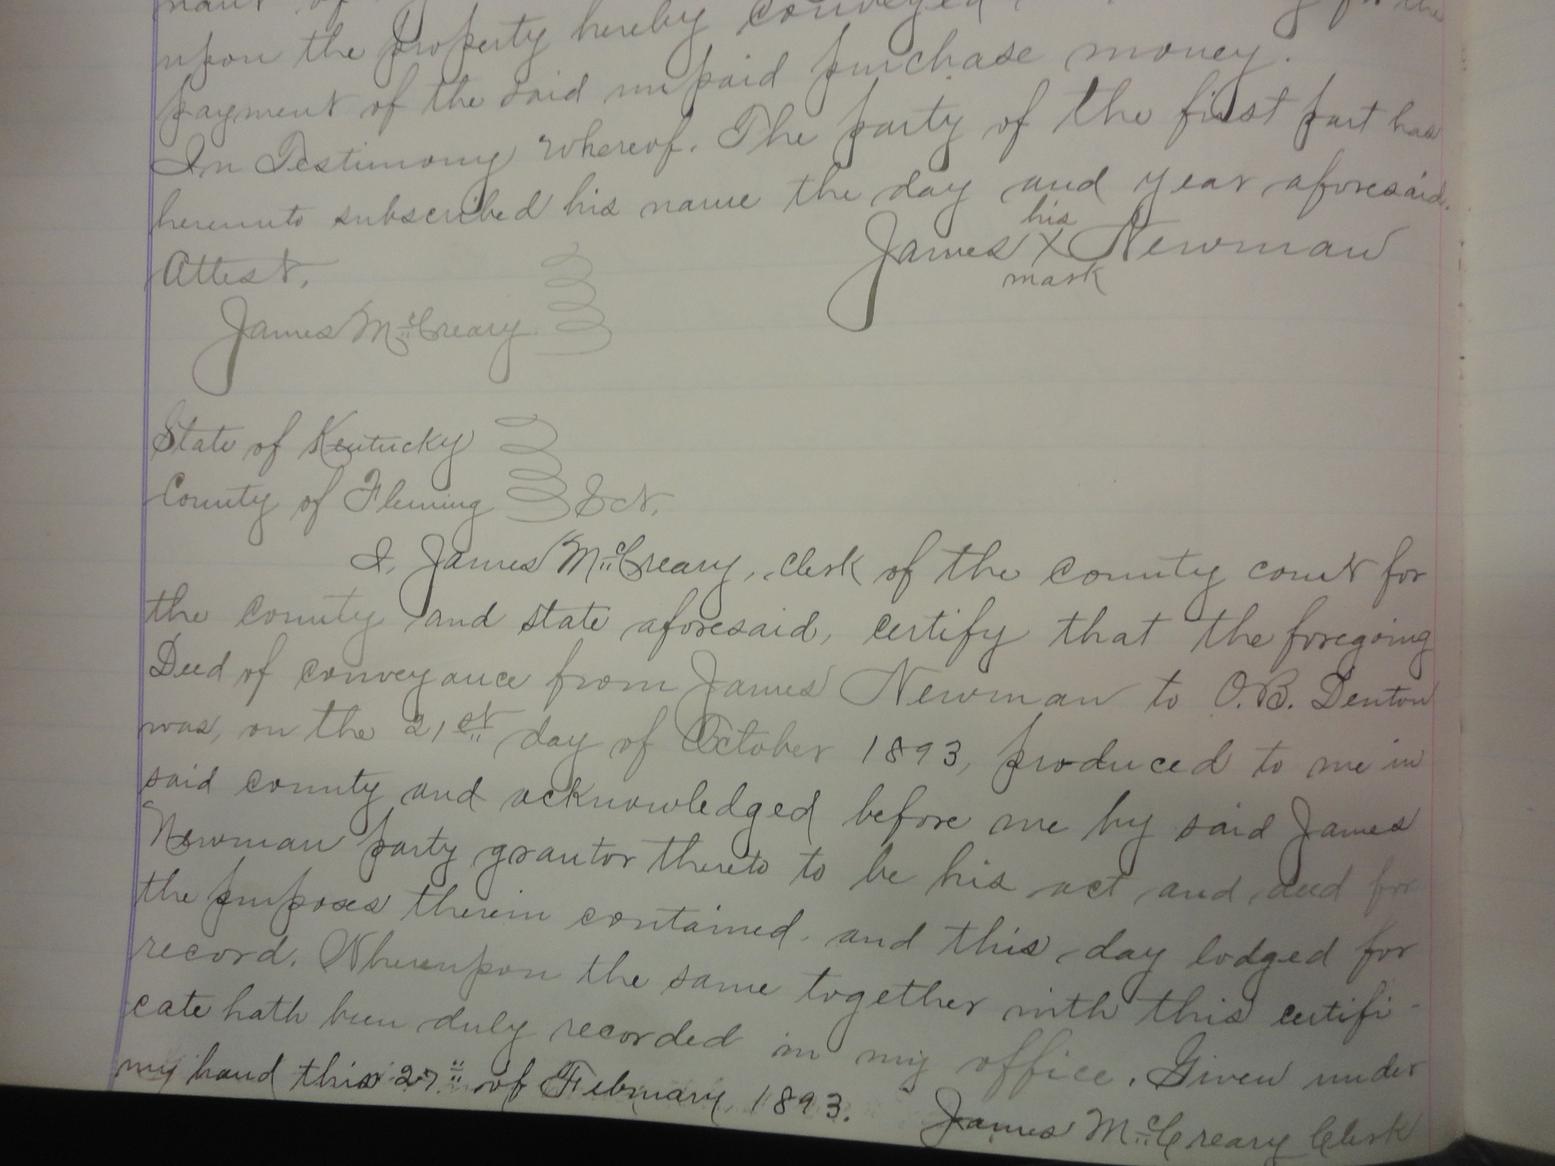 upon the property hereby conveyed for the
payment of the said unpaid purchase money.
In Testimony whereof. The party of the first part has
hereunto subscribed his name the day and year aforesaid.
his
James X Newman
mark
Attest,
James McCreary
State of Kentucky
County of Fleming Sct.
I, James McCreary, clerk of the county court for
the county and state aforesaid, certify that the foregoing
Deed of conveyance from James Newman to O.B. Denton
was, on the 21st day of October 1893, produced to me in
said county and acknowledged before me by said James
Newman party grantor thereto to be his act and deed for
the purposes therein contained, and this day lodged for
record. Whereupon the same together with this certifi-
cate hath been duly recorded in my office. Given under
my hand this 27" of February, 1893.
James McCreary Clerk